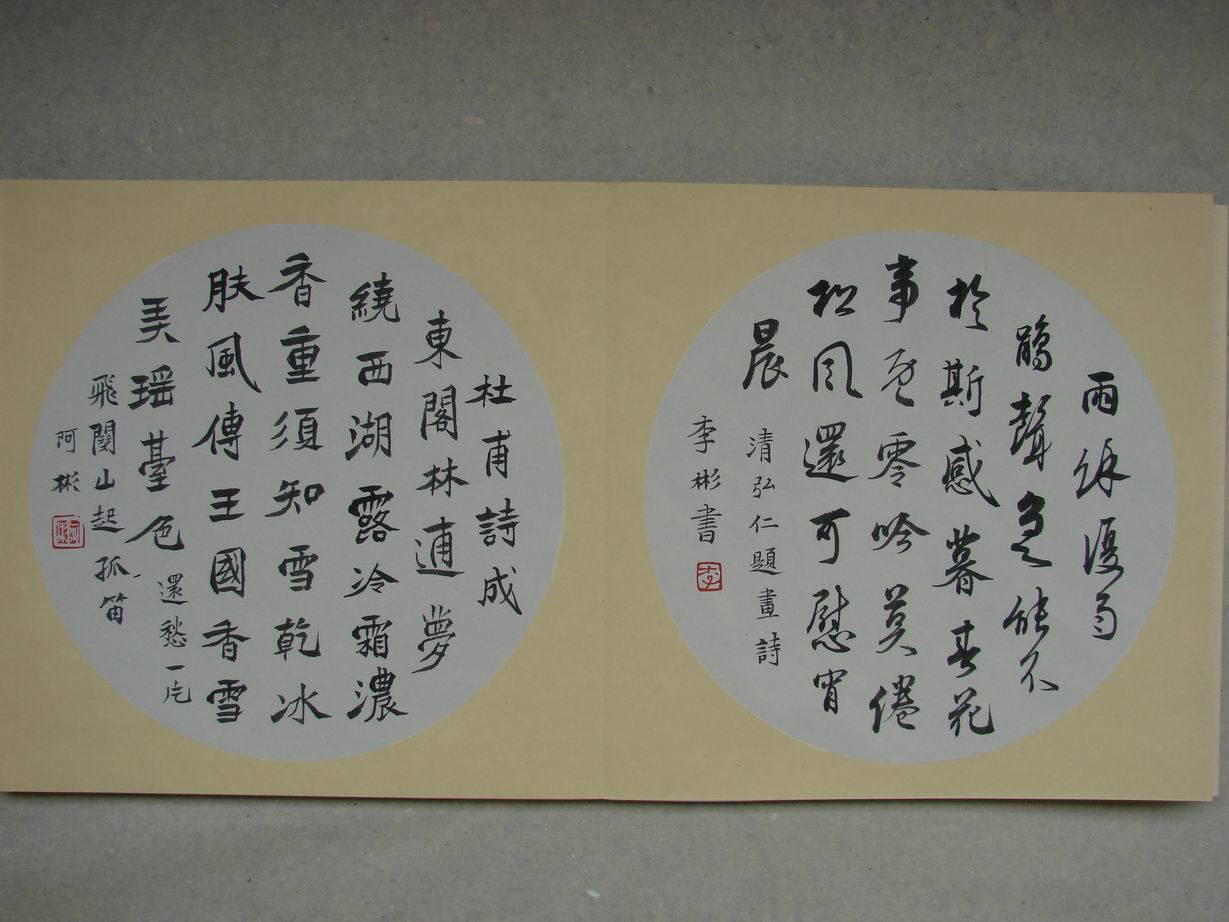 雨餘復雨
鵑聲急能不
於斯感暮春花
事既零吟莫倦
松風還可慰宵
晨 清弘仁題畫詩
李彬書
李
杜甫詩成
東閣林逋夢
繞西湖露冷霜濃
香重須知雪乾冰
肤風傳王國香雪
美瑶臺色 還愁一片
飛關山起孤笛
阿彬